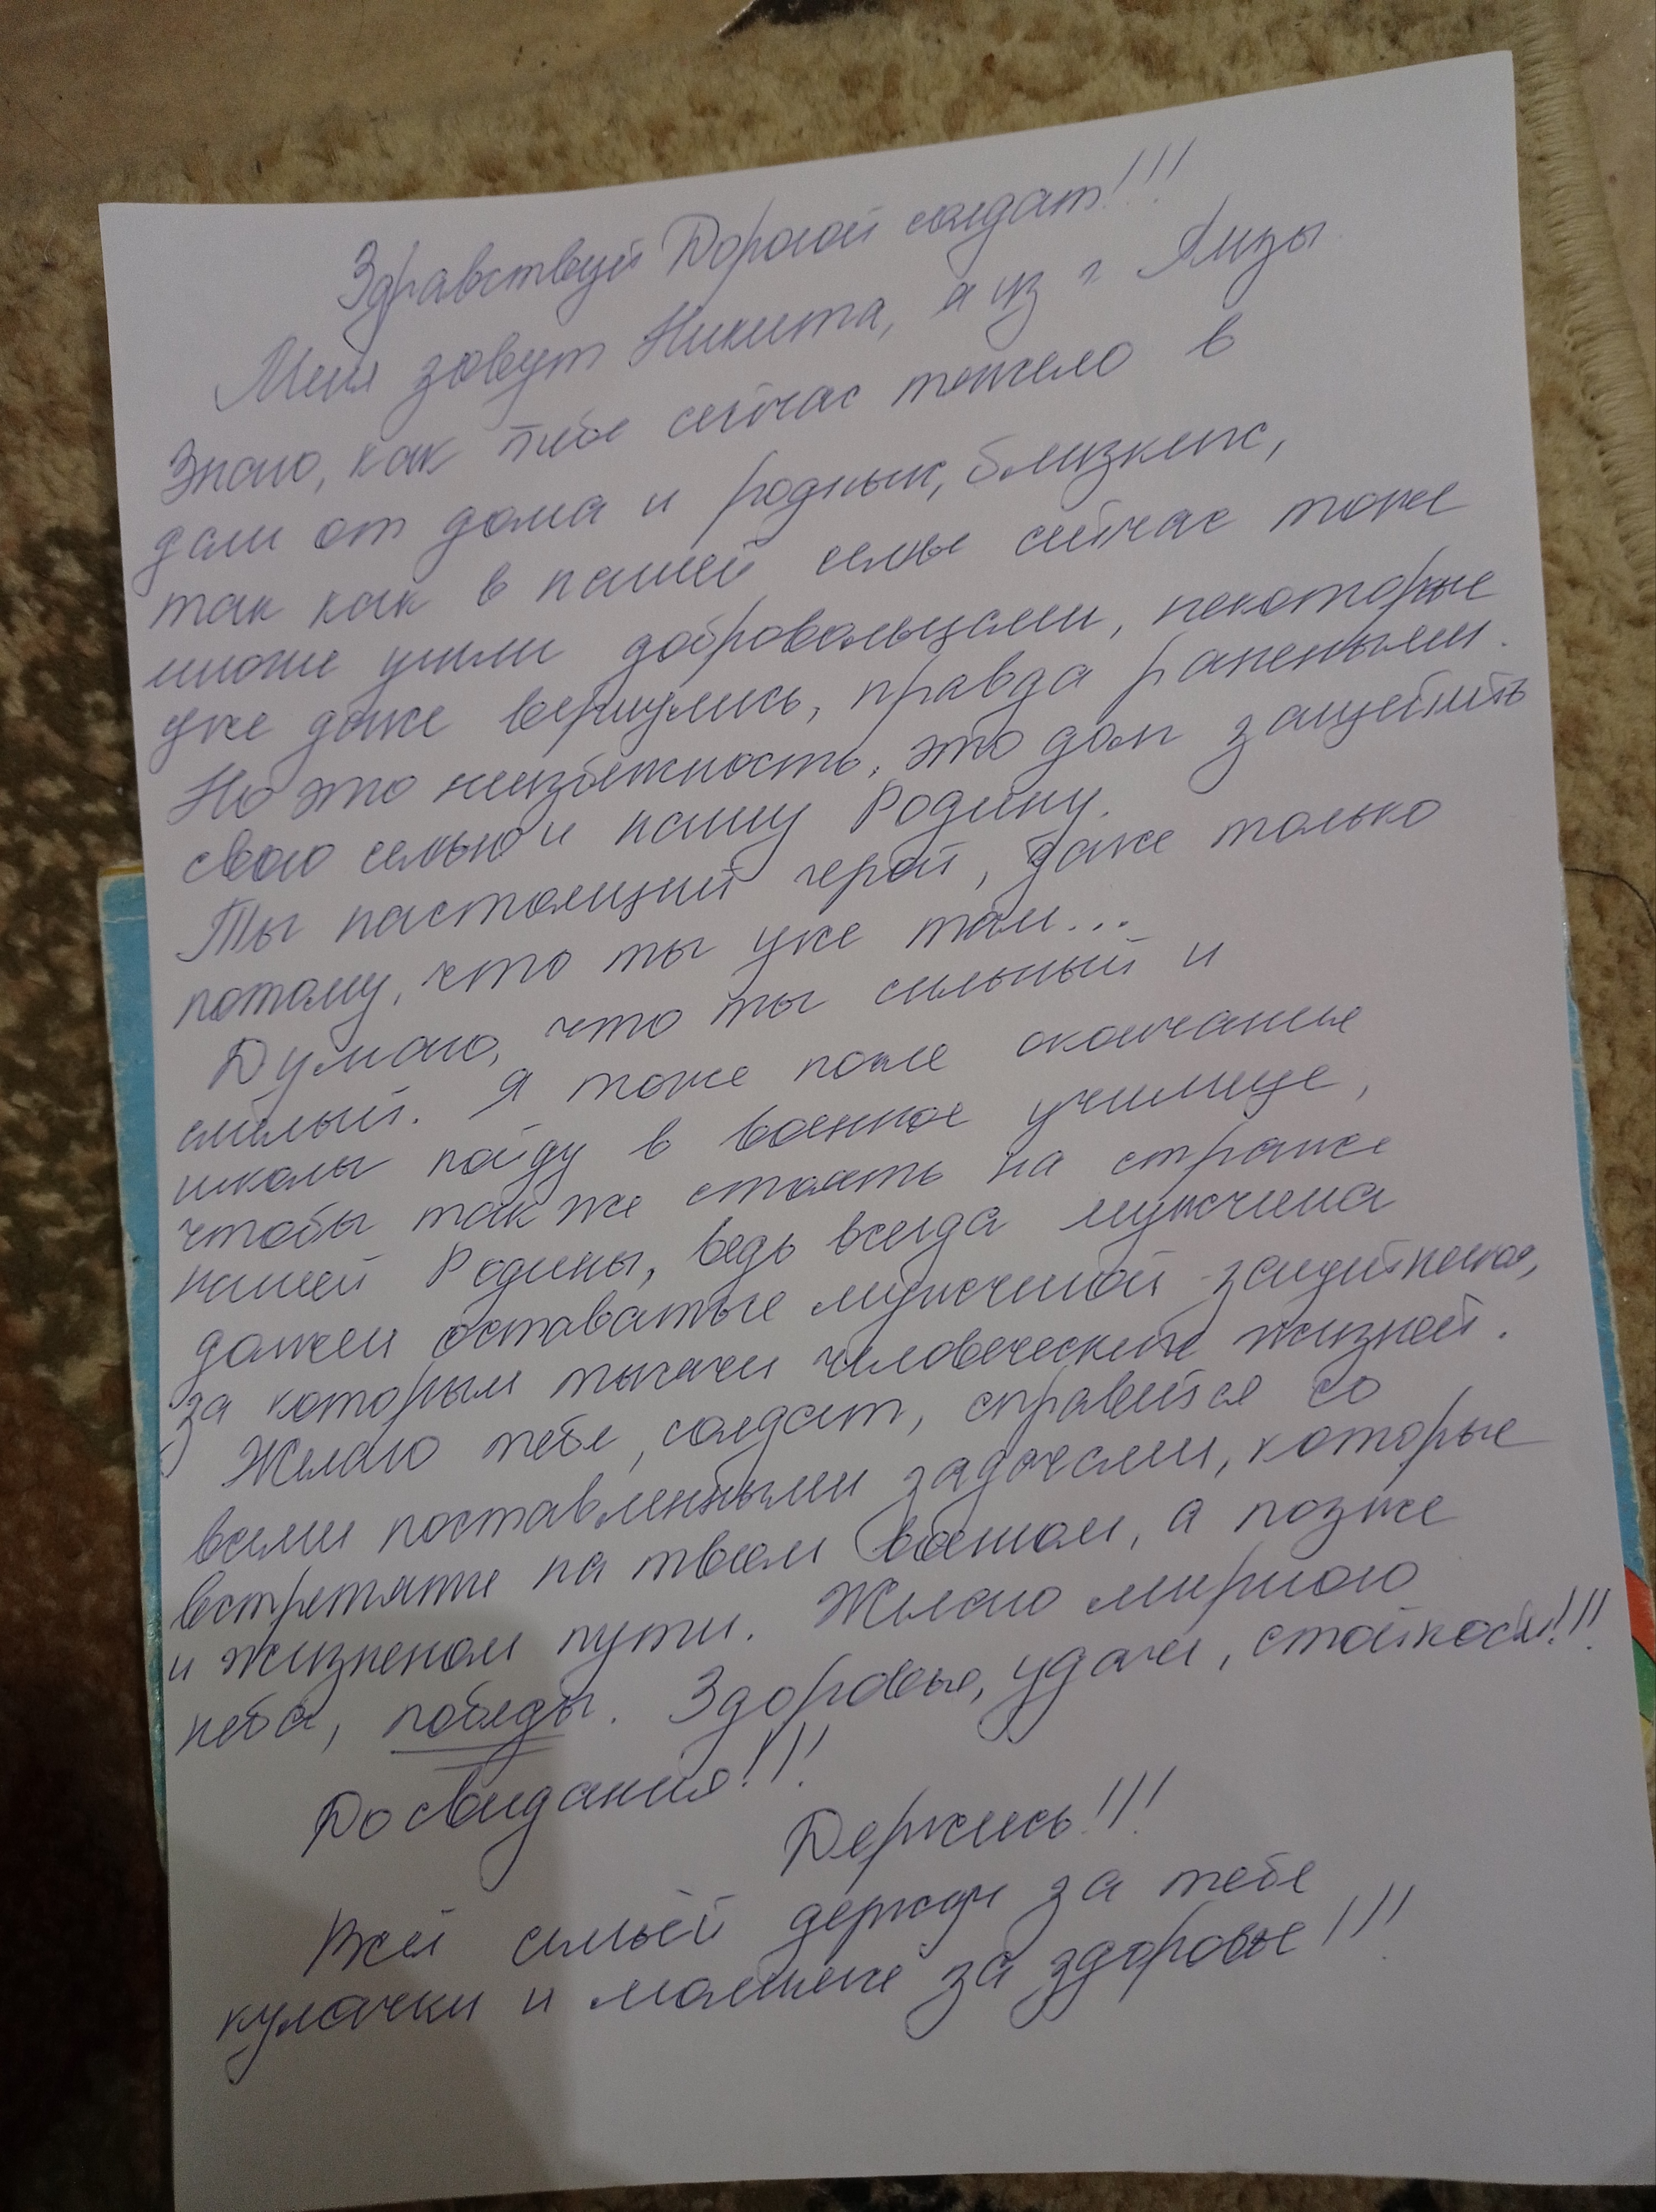 Здравствуй Дорогой солдат!!!
Меня зовут Никита, я из г. Ялузы
Знаю, как тебе сейчас тяжело в
дали от дома и родных, близких,
так как в нашей семье сейчас тоже
многие ушли добровольцами, некоторые
уже даже вернулись, правда ранеными.
Но это неизбежность, это долг защитить
свою семью и нашу Родину.
Ты настоящий герой, даже только
потому, что ты уже там...
Думаю, что ты сильный и
смелый. Я тоже после окончание
школы пойду в военное училище,
чтобы так же стоять на страже
нашей Родины, ведь всегда мужчина
должен оставаться мужчиной - защитником,
за которым тысячи человеческих жизней.
Желаю тебе, солдат, справится со
всеми поставленными задачами, которые
встретятся на твоём военном, а позже
и жизненом пути. Желаю мирного
неба, победы. Здоровья, удачи, стойкости!!!
До свидания!!!
Держись!!!
Всей семьёй держим за тебя
кулачки и молимся за здоровье!!!